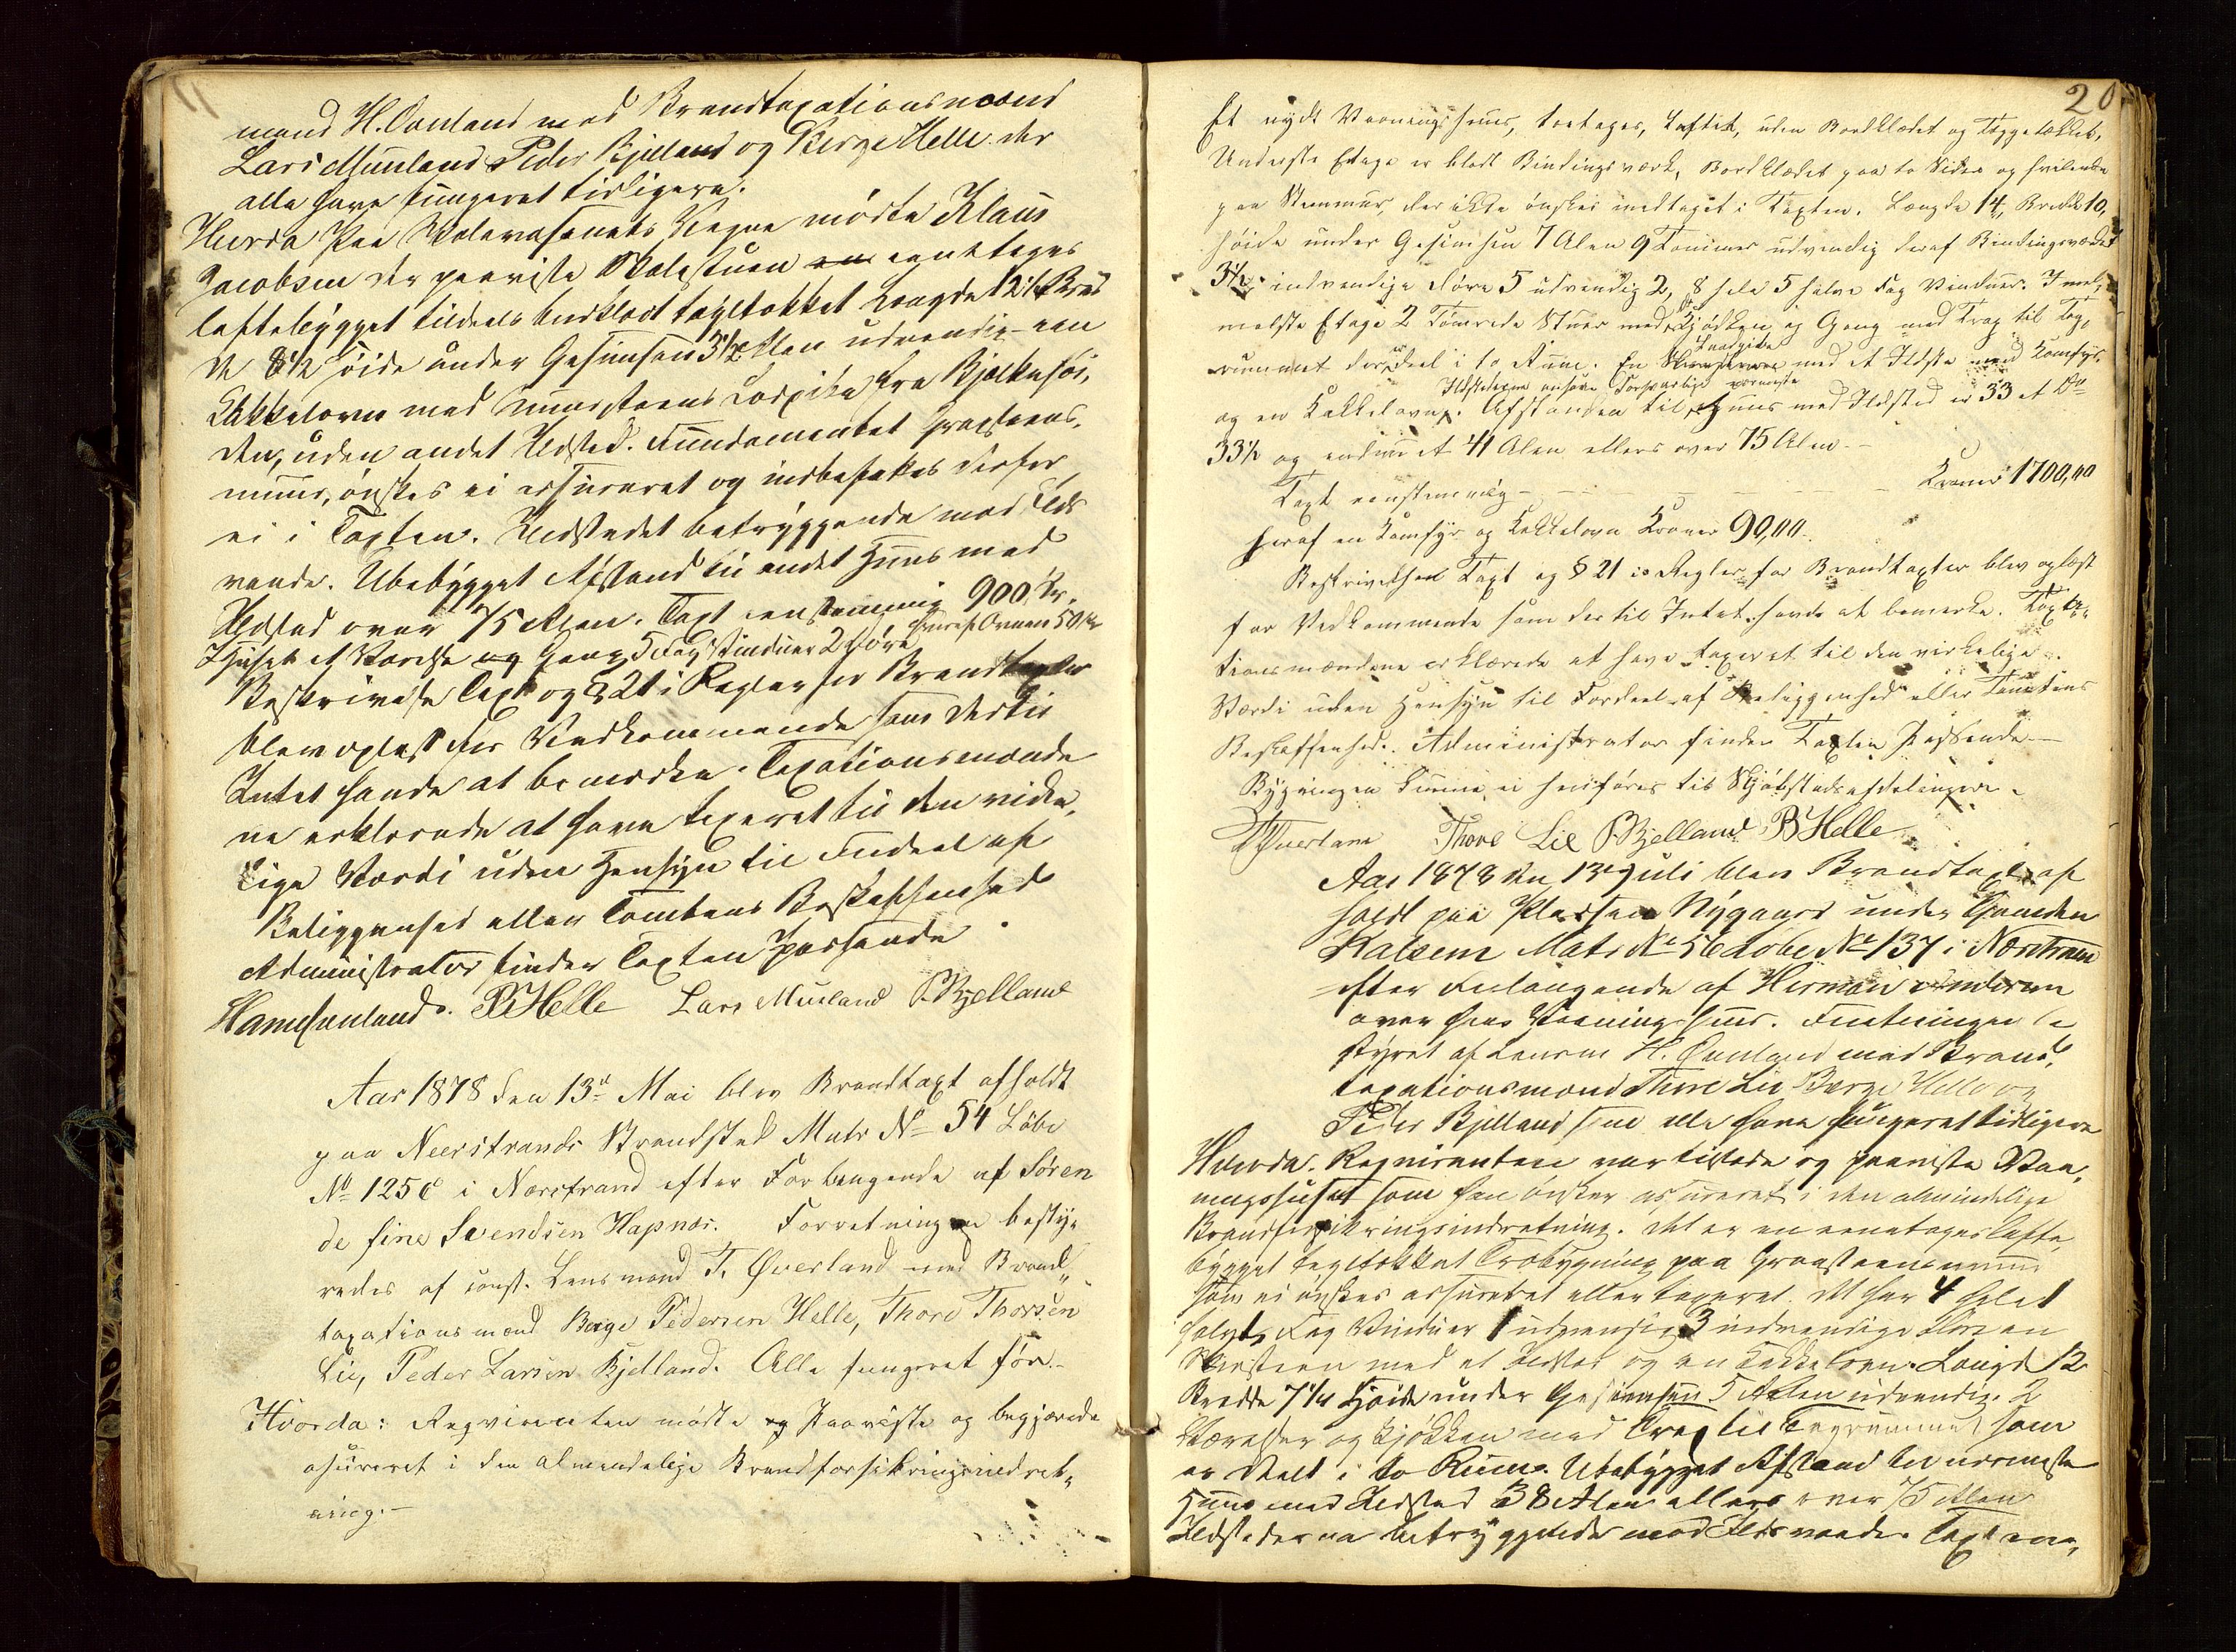 mand H. Osuland med Brandtaxationsmænd
Lars Musland Peder Bjelland og Berge Helle der
alle have fungeret tidligere.
Hvorda Paa Skolevæsenets Vegne mødte Klaus
Jacobsen der paaviste Skolestuen en eenetages
loftebygget tildeels bordklædt tegltækket Længde 12½ Bred
de 8½ Høide under Gesimsen 3½ Alen udvendig een
Kakkelovn med muursteens Lodpibe fra Bjelkehøi,
den, uden andet Ildsted. Fundamentet Graasteens,
muur, ønskes ei assureret og indbefattes derfor
ei i Taxten. Ildstedet betryggende mod Ilds
vaade. Ubebygget Afstand til andet Huus med
Ildsted over 75 Alen. Taxt eenstemmig 900 Kr.
hvoraf Ovnen 50 Kr
I Huset et Værelse og Gang 5 Fag Vinduer 2 Døre
Beskrivelse Taxt og § 21 i Regler for Brandtaxter
blev oplæst for Vedkommende som dertil
Intet havde at bemærke. Taxationsmænde
ne erklærede at have taxeret til den virke,
lige Værdi uden Hensyn til Fordeel af
Beliggenhed eller Tomtens Beskaffenhed
Administrator finder Taxten passende.
B Helle Lars Musland P. Bjelland
Aar 1878 den 13de Mai blev Brandtaxt afholdt
paa Neerstrands Strandsted Matr No 54 Løbe
No 125c i Nærstrand efter Forlangende af Søren
de fine Svendsen Hapnæs. Forretningen besty,
redes af const. Lensmand T. Øverland med Brand,,
taxationsmænd Børge Pedersen Helle, Thore Thorsen
Lie, Peder Larsen Bjelland. Alle fungeret før.
Hvorda: Reqvirenten mødte og paaviste og begjærede
assureret i den almindelige Brandforsikringsindret,,
ning.—
20
Et nydt Vaaningshuus, toetages, loftet, uden Bordklædet og Teggeltækket,
Underste Etage er blodt Bindingsværk, Bordklædet paa to Sider og hvilende
paa Stenmur, der ikke ønskes medtaget i Taxten. Længde 14, Bredde 10,
høide under Gesimsen 7 Alen 9 Tommer udvendig deraf Bindingsværket
3½, indvendige Døre 5 udvendig 2, 8 hele 5 halve Fag Vinduer. I mel,
melste Etage 2 Tømrede Stuer med Kjøkken og Gang med Trap til Tag,
rummet der er deel i to Rume. En med et Ildsted med Komfyr
Ildstederne ansees Forsvarlige nærmeste
og en Kakkelovn. Afstanden til Huus med Ildsted er 33 et Do
33½ og endnu et 41 Alen ellers over 75 Alen.—
Taxt eenstemmig — Kroner 1700,00
heraf en Komfyr og Kakkelovn Kroner 90,00.
Beskrivelsen Taxt og § 21 i Regler for Brandtaxter blev oplæst
for Vedkommende som dertil Intet havde at bemærke. Taxa,
tionsmændene erklærede at have taxeret til den virkelige
Værdi uden Hensyn til Fordeel af Beliggenhed eller Tomtens
Beskaffenhed. Administrator finder Taxten Passende—
Bygningen kunne ei henføres til Kjøbstadsafdelingen.
T Øverland Thore Lie P. Bjelland B Helle
Aar 1878 den 13de Juli blev Brandtaxt af
holdt paa Pladsen Nygaard under Gaarden
Matr No 56 Løbe No 137 i Nærstrand
efter Forlangende af Herman
over hans Vaaningshuus. Forretningen be
styret af Lensm H. Osuland med Brand,
taxationsmænd Thore Lie Børge Helle og
Peder Bjelland som alle have fungeret tidligere
Hvorda. Requirenten var tilstede og paaviste Vaa,
ningshuset som han ønsker assureret i den almindelige
Brandforsikringsindretning. Det er en eenetages lofte,
bygget tegltækket Træbygning paa Graasteensmuur
som ei ønskes assureret eller taxeret. Det har 4 hele 1
halvt Fag Vinduer 1 udvendig 3 indvendige Døre en
Skorsteen med et Ildsted og en Kakkelovn. Længde 12
Bredde 7½ Høide under Gesimsen 5 Alen udvendig. 2
Værelser og Kjøkken med Trap til Tagrummet som
er deelt i to Rum. Ubebygget Afstand til nærmeste
Huus med Ildsted 38 Alen ellers over 75 Alen
Ildstederne betryggende mod Ildsvaade. Taxt een,